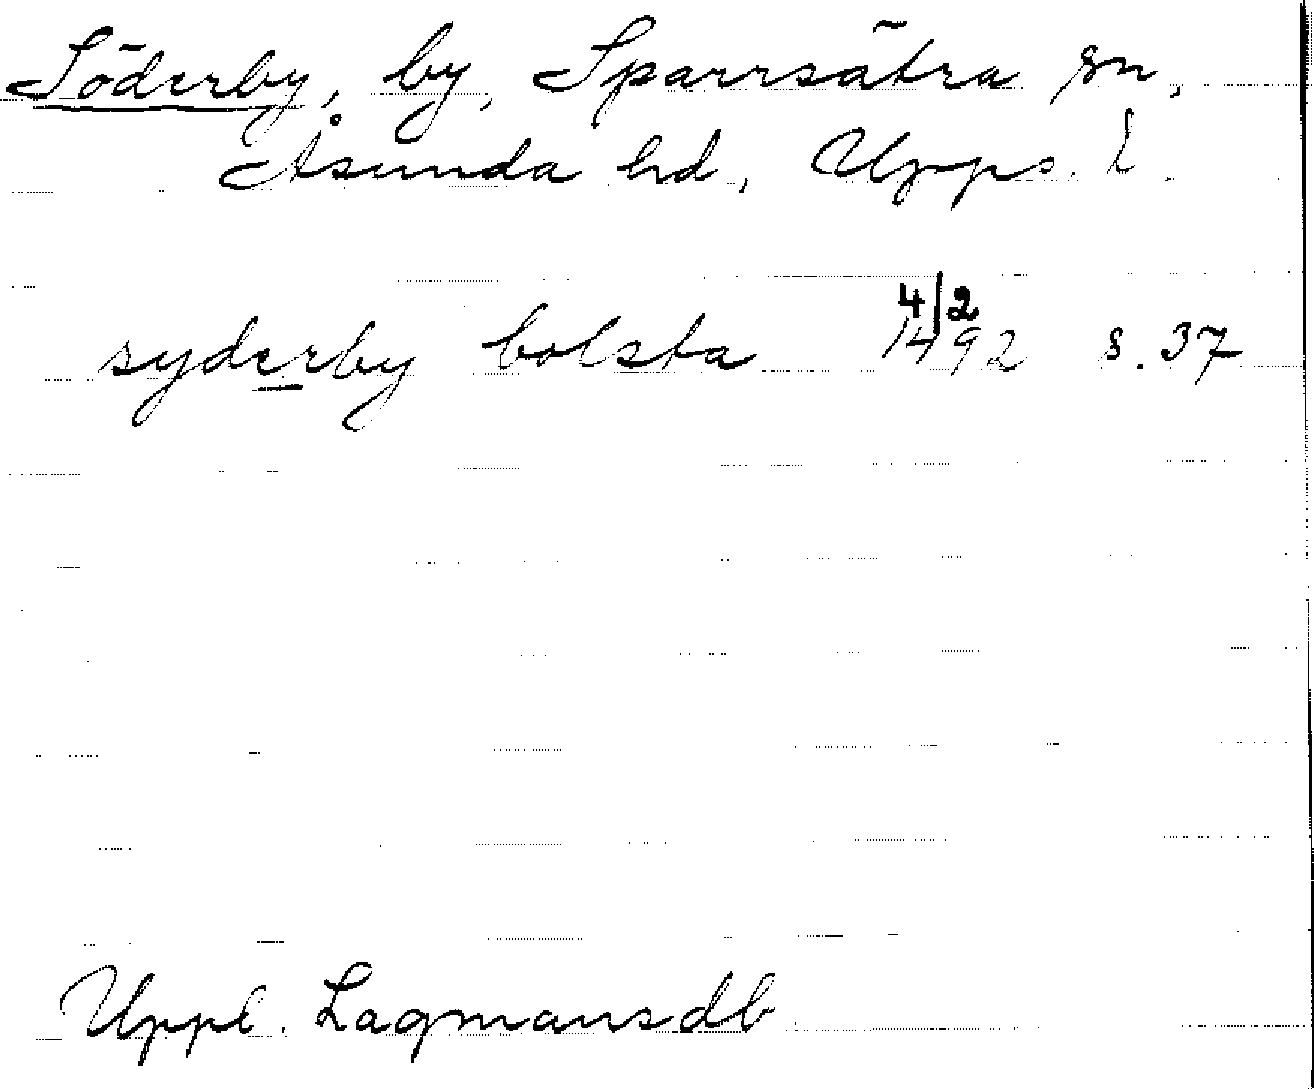 Söderby, by, Sparrsätra sn,
Åsunda hd, Upps. l.
syderby bolsta 4/2 1492 s. 37
Uppl. Lagmansdb